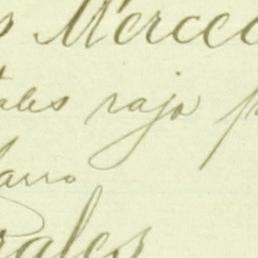 s Merced
tales rajo p
arro
rales